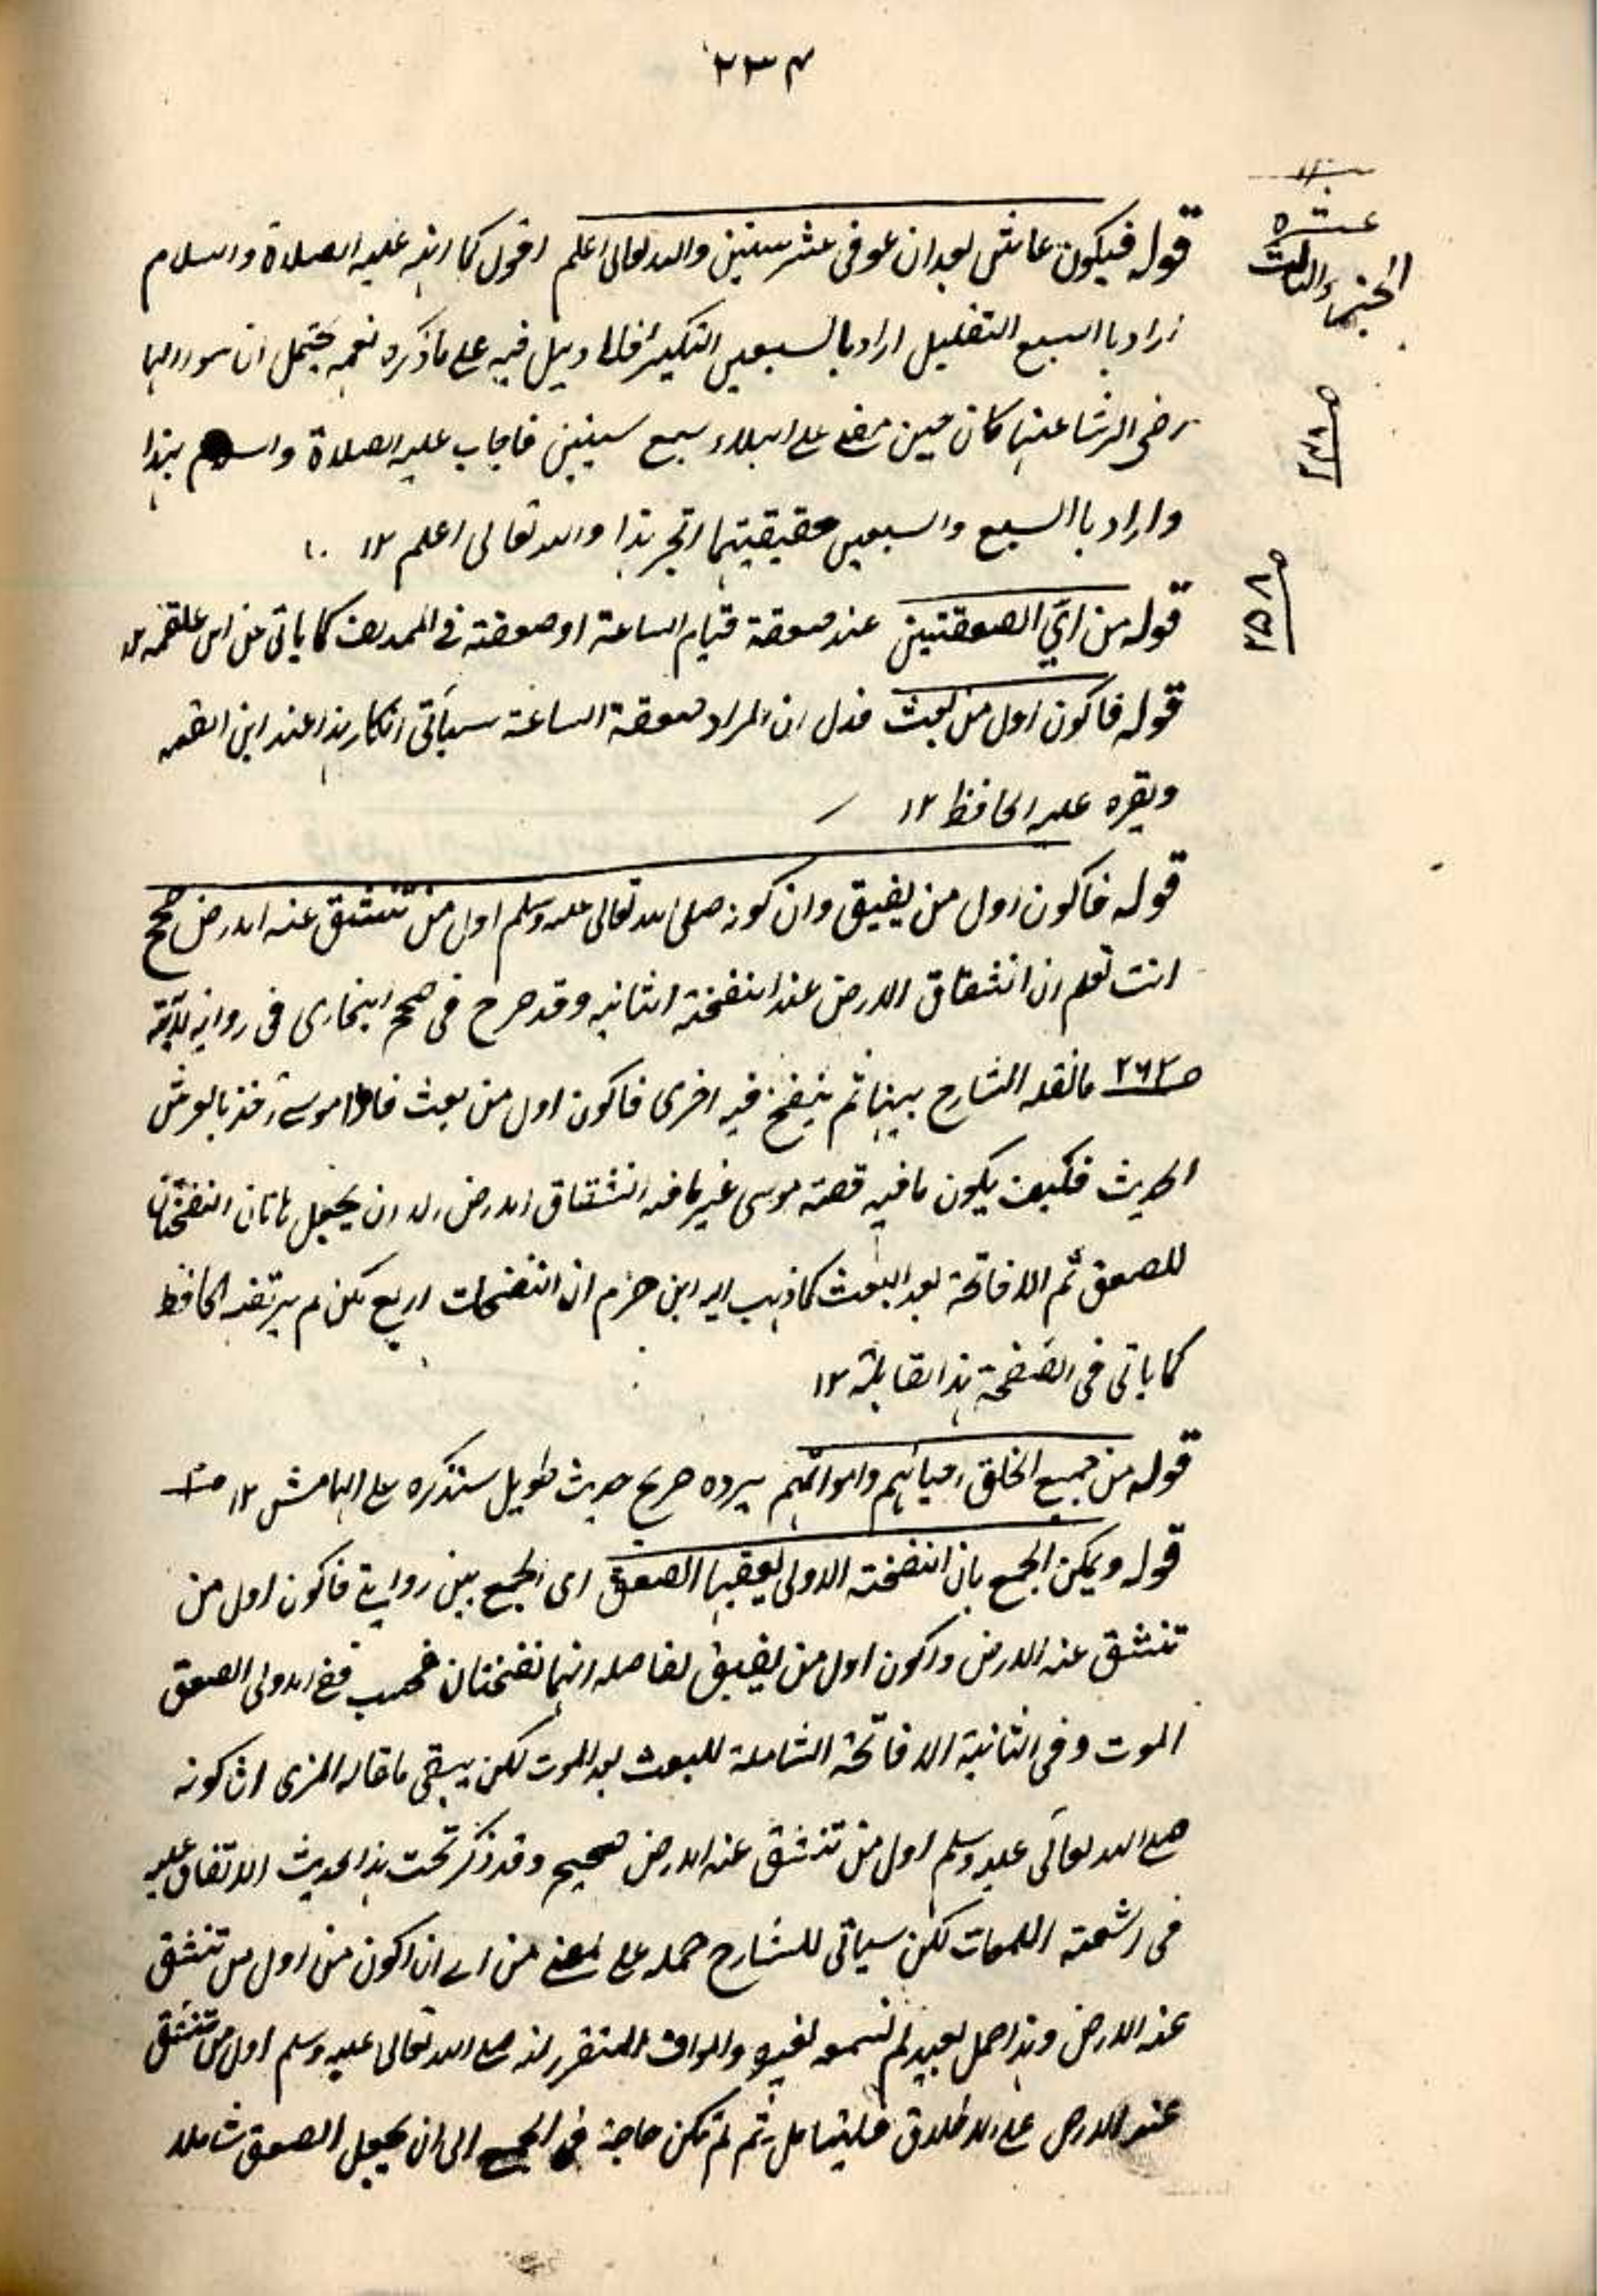 ٢٣٤
عشره
الجزء الثالث
قوله فيكون عاش بعد ان عوفى عشر سنين والله تعالى اعلم اقول كما انه عليه الصلاة والسلام
اراد با السبع التقليل اراد بالسبعين التكثير فلا دليل فيه على ما ذكره نعم يحتمل ان سؤالها
رضى الله تعالى عنها كان حين مضى على البلاء سبع سنين فاجاب عليه الصلاة والسلام بهذا
واراد با السبع والسبعين حقيقيتهما اتجه هذا والله تعالى اعلم ١٢
٢٥٨
قوله من اي الصعقتين عند صعقة قيام الساعة او صعقة فى كما ياتى عن ابن
قوله فاكون اول من بعث فدل ان المراد صعقة الساعة سياتى انكار هذا عند ابن القيم
ويقره عليه الحافظ ١٢
قوله فاكون اول من يفيق وان كونه صلى الله تعالى عليه وسلم اول من تنشق عنه الارض صحيح
انت تعلم ان انشقاق الارض عند النفخة الثانيه وقد صرح فى صحيح البخارى فى رواية
ص٢٦٢ ما نقله الشارح بينهما ثم ينفخ فيه اخرى فاكون اول من بعث فاذا موسى آخذ بالعرش
الحديث فكيف يكون ما فيه قصة موسى غير ما فيه انشقاق الارض الا ان يجعل هاتان النفختان
للصعق ثم الافاقة بعد البعث كما ذهب اليه ابن حزم ان النفخات اربع لكن لم يرتضه الحافظ
كما ياتى فى الصفحة هذا القابلة ١٢
قوله من جميع الخلق احيائهم وامواتهم يرده صريح حديث طويل سنذكره على الهامش ١٢
قوله ويمكن الجمع بان النفخة الاولى يعقبها الصعق اى الجمع بين روايتى فاكون اول من
تنشق عنه الارض واكون اول من يفيق لحاصله انهما نفختان فحسب ففى الاولى الصعق
الموت وفى الثانية الافاقة الشاملة للبعث بعد الموت لكن يبقى ما قاله المزى ان كونه
صلى الله تعالى عليه وسلم اول من تنشق عنه الارض صحيح وقد ذكر تحت هذا الحديث الاتفاق عليه
فى اشعة اللمعات لكن سياتى للشارح حمله على معنى من اى ان اكون من اول من تنشق
عنه الارض وهذا حمل بعيد لم نسمعه لغيره المتقرر انه صلى الله تعالى عليه وسلم اول من تنشق
عنه الارض على الاطلاق فليتامل ثم لم تكن حاجة فى الجمع الى ان يجعل الصعق شاملا